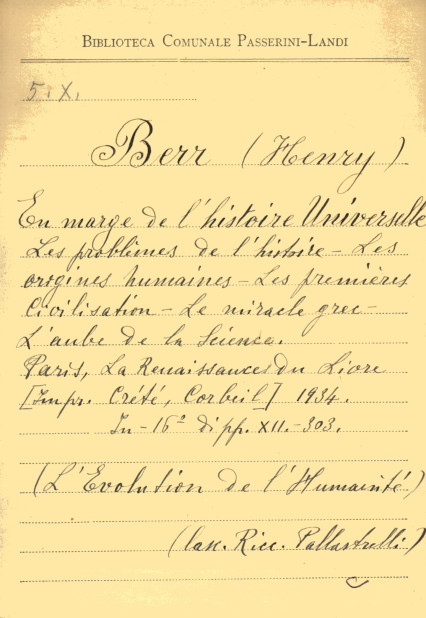 BIBLIOTECA COMUNALE PASSERINI-LANDI
5. X.
Berr (Henry)
En marge de l'histoire Universelle
Les problèmes de l'histoire - Les
origines humaines - Les premières
Civilisation - Le miracle grec -
L'aube de la Science.
Paris, La Renaissances du Livre
[Impr. Crété, Corbeil] 1934.
In-16º di pp. XII.-303.
(L'Evolution de l'Humanité)
(Lasc. Ricc. Pallastrelli)